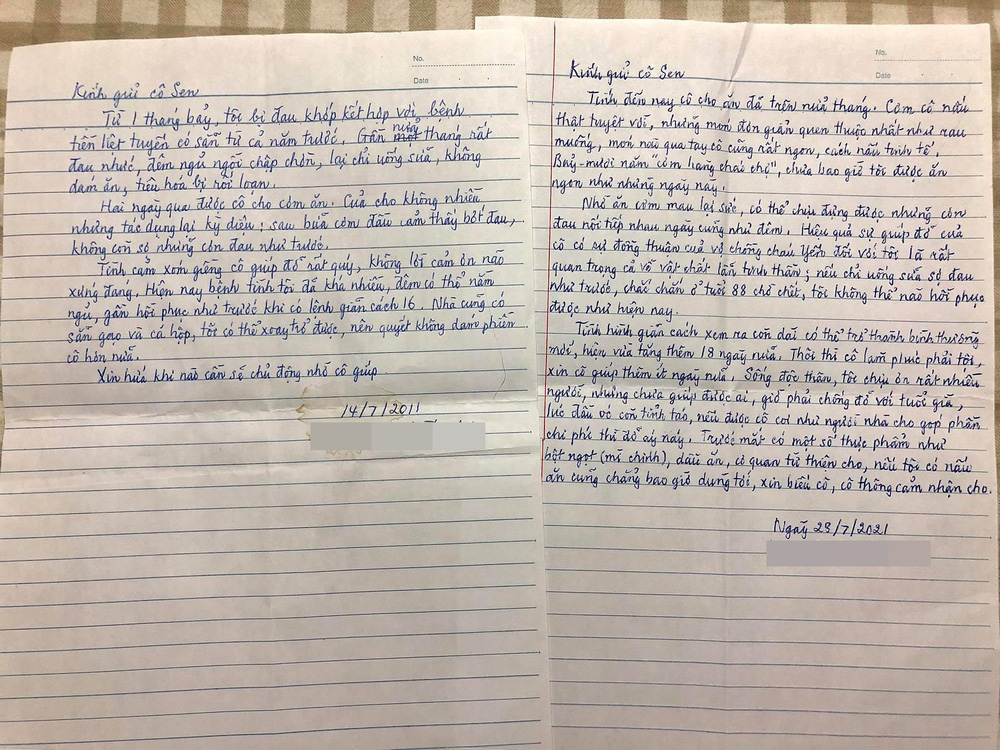 No.
Date
Kính gửi cô Sen
Từ 1 tháng bảy, tôi bị đau khớp kết hợp với bệnh
tiền liệt tuyến có sẵn từ cả năm trước. Gần nửa tháng rất
đau nhức, đêm ngủ ngồi chập chờn, lại chỉ uống sữa, không
dám ăn, tiêu hóa bị rối loạn.
Hai ngày qua được cô cho cơm ăn. Của cho không nhiều
nhưng tác dụng lại kỳ diệu; sau bữa cơm đầu cảm thấy bớt đau,
không còn sợ những cơn đau như trước.
Tình cảm xóm giềng cô giúp đỡ rất quý, không lời cảm ơn nào
xứng đáng. Hiện nay bệnh tình tôi đã khá nhiều, đêm có thể nằm
ngủ, gần hồi phục như trước khi có lệnh giãn cách 16. Nhà cũng có
sẵn gạo và cá hộp, tôi có thể xoay trở được, nên quyết không dám phiền
cô hơn nữa.
Xin hứa khi nào cần sẽ chủ động nhờ cô giúp.
14/7/2011
No.
Date
Kính gửi cô Sen
Tính đến nay cô cho ăn đã trên nửa tháng. Cơm cô nấu
thật tuyệt vời, những món đơn giản quen thuộc nhất như rau
muống, món nào qua tay cô cũng rất ngon, cách nấu tinh tế.
Bảy-mươi năm "cơm hàng cháo chợ", chưa bao giờ tôi được ăn
ngon như những ngày này.
Nhờ ăn cơm mau lại sức, có thể chịu đựng được những cơn
đau nối tiếp nhau ngày cũng như đêm. Hiệu quả sự giúp đỡ của
cô có sự đồng thuận của vợ chồng cháu Yến đối với tôi là rất
quan trọng cả về vật chất lẫn tinh thần; nếu chỉ uống sữa sợ đau
như trước, chắc chắn ở tuổi 88 chờ chết, tôi không thể nào hồi phục
được như hiện nay.
Tình hình giãn cách xem ra còn dài có thể trở thành bình thường
mới, hiện vừa tăng thêm 18 ngày nữa. Thôi thì cô làm phúc phải tội,
xin cô giúp thêm ít ngày nữa. Sống độc thân, tôi chịu ơn rất nhiều
người, nhưng chưa giúp được ai, giờ phải chống đỡ với tuổi già,
lúc đầu óc còn tỉnh táo, nếu được cô coi như người nhà cho góp phần
chi phí thì đỡ áy náy. Trước mắt có một số thực phẩm như
bột ngọt (mì chính), dầu ăn, cơ quan từ thiện cho, nếu tôi có nấu
ăn cũng chẳng bao giờ dùng tới, xin biếu cô, cô thông cảm nhận cho.
Ngày 29/7/2021